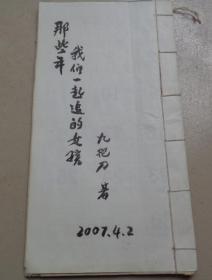 那些年
我们一起追的女孩
九把刀 著
2007.4.2